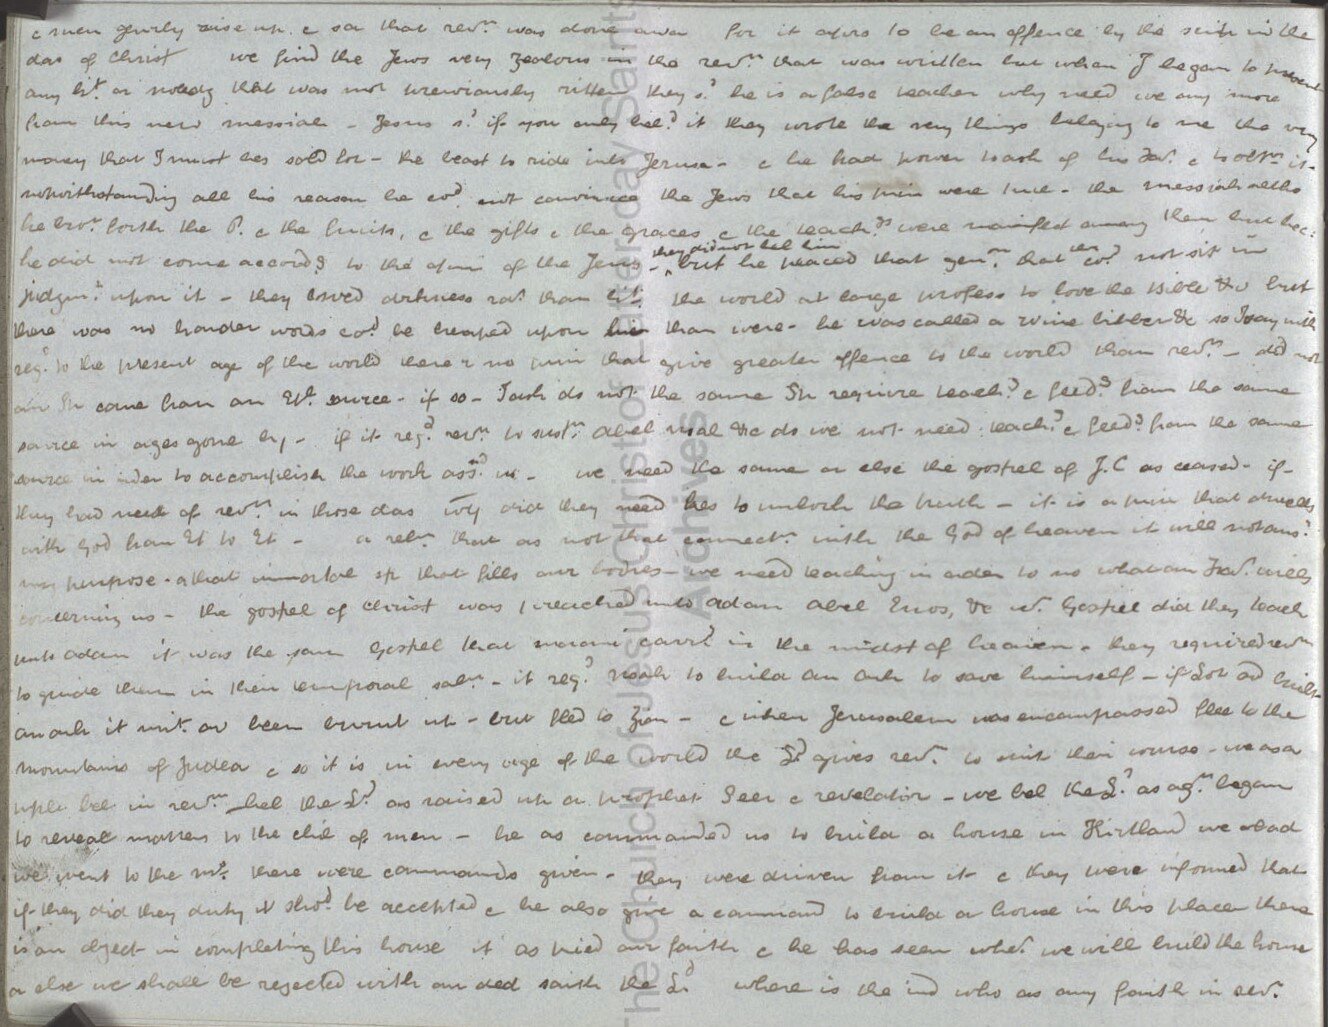 & men gravely rise up & sa that rev.n was done awa for it apprs to be an offence by the scrip in the
das of Christ we find the Jews very zealous in the rev.n that was written but when J began to present
any lit. or nowledg that was not previously ritten they s.d he is a false teacher why need we any more
from this new messiah - Jesus s.d if you only bel.d it they wrote the very things belong to me the very
money that I must bes sold for - the beast to ride into Jerusa - & he had power to ask of his Fa.r & to obt.n it -
notwithstanding all his reason he co.d not convince the Jews that his prin were true - the messiah altho
he bro.t forth the P. & the fruits, & the gifts & the graces & the teach.gs were manifest among them but bec.
he did not come accord.g to the opin of the Jews - they did not bel him but he placed that gen.n that ther co.d not sit in
judgm.t upon it - they loved darkness ra.r than lit. the world at large profess to love the Bible &c but
there was no harder words co.d be heaped upon him than were - he was called a wine bibber &c so I say with
reg.d to the present age of the world there r no prin that give greater offence to the world than rev.n - did not
our Sp come from an Et.l source - if so - I ask do not the same Sp require teach.g & feed.g from the same
source in ages gone by - if it req.d rev.n to sust.n Abel Noah &c do we not need teach.g & feed.g from the same
source in order to accomplish the work ass.d us - we need the same or else the gospel of J.C as ceased - if
they had need of rev.n in those das why did they need kes to unlock the truth - it is a prin that dwells
with God from Et to Et - a rel.n that as not that connect.n with the God of heaven it will not ans.r
my purpose - & that immortal sp that fills our bodies - we need teaching in order to no what our Fa.r wills
concerning us - the gospel of Christ was preached unto Adam Abel Enos, &c w.t Gospel did they teach
unto Adam it was the sam Gospel that moroni carr.d in the midst of heaven - they required rev.n
to guide them in their temporal sal.n - it req.d Noah to build an ark to save himself - if Lot ad built
an ark it mit. av been burnt up - but fled to Zoar - & when Jerusalem was encompassed flee to the
mountains of Judea & so it is in every age of the world the L.d gives rev.n to suit their course - we as a
peple bel in rev.n bel the L.d as raised up a prophet Seer & revelator - we bel the L.d as ag.n began
to reveal matters to the chil of men - he as commanded us to build a house in Kirtland we obad
we went to the mo. there were commands given - they were driven from it & they were informed that
if they did they duty it sho.d be accepted & he also give a command to build a house in this place there
is an object in completing this house it as tried our faith & he has seen whe.r we will build the house
or else we shall be rejected with our ded saith the L.d where is the ind who as any faith in rev.n
The Church of Jesus Christ of Latter-day Saints
Archives